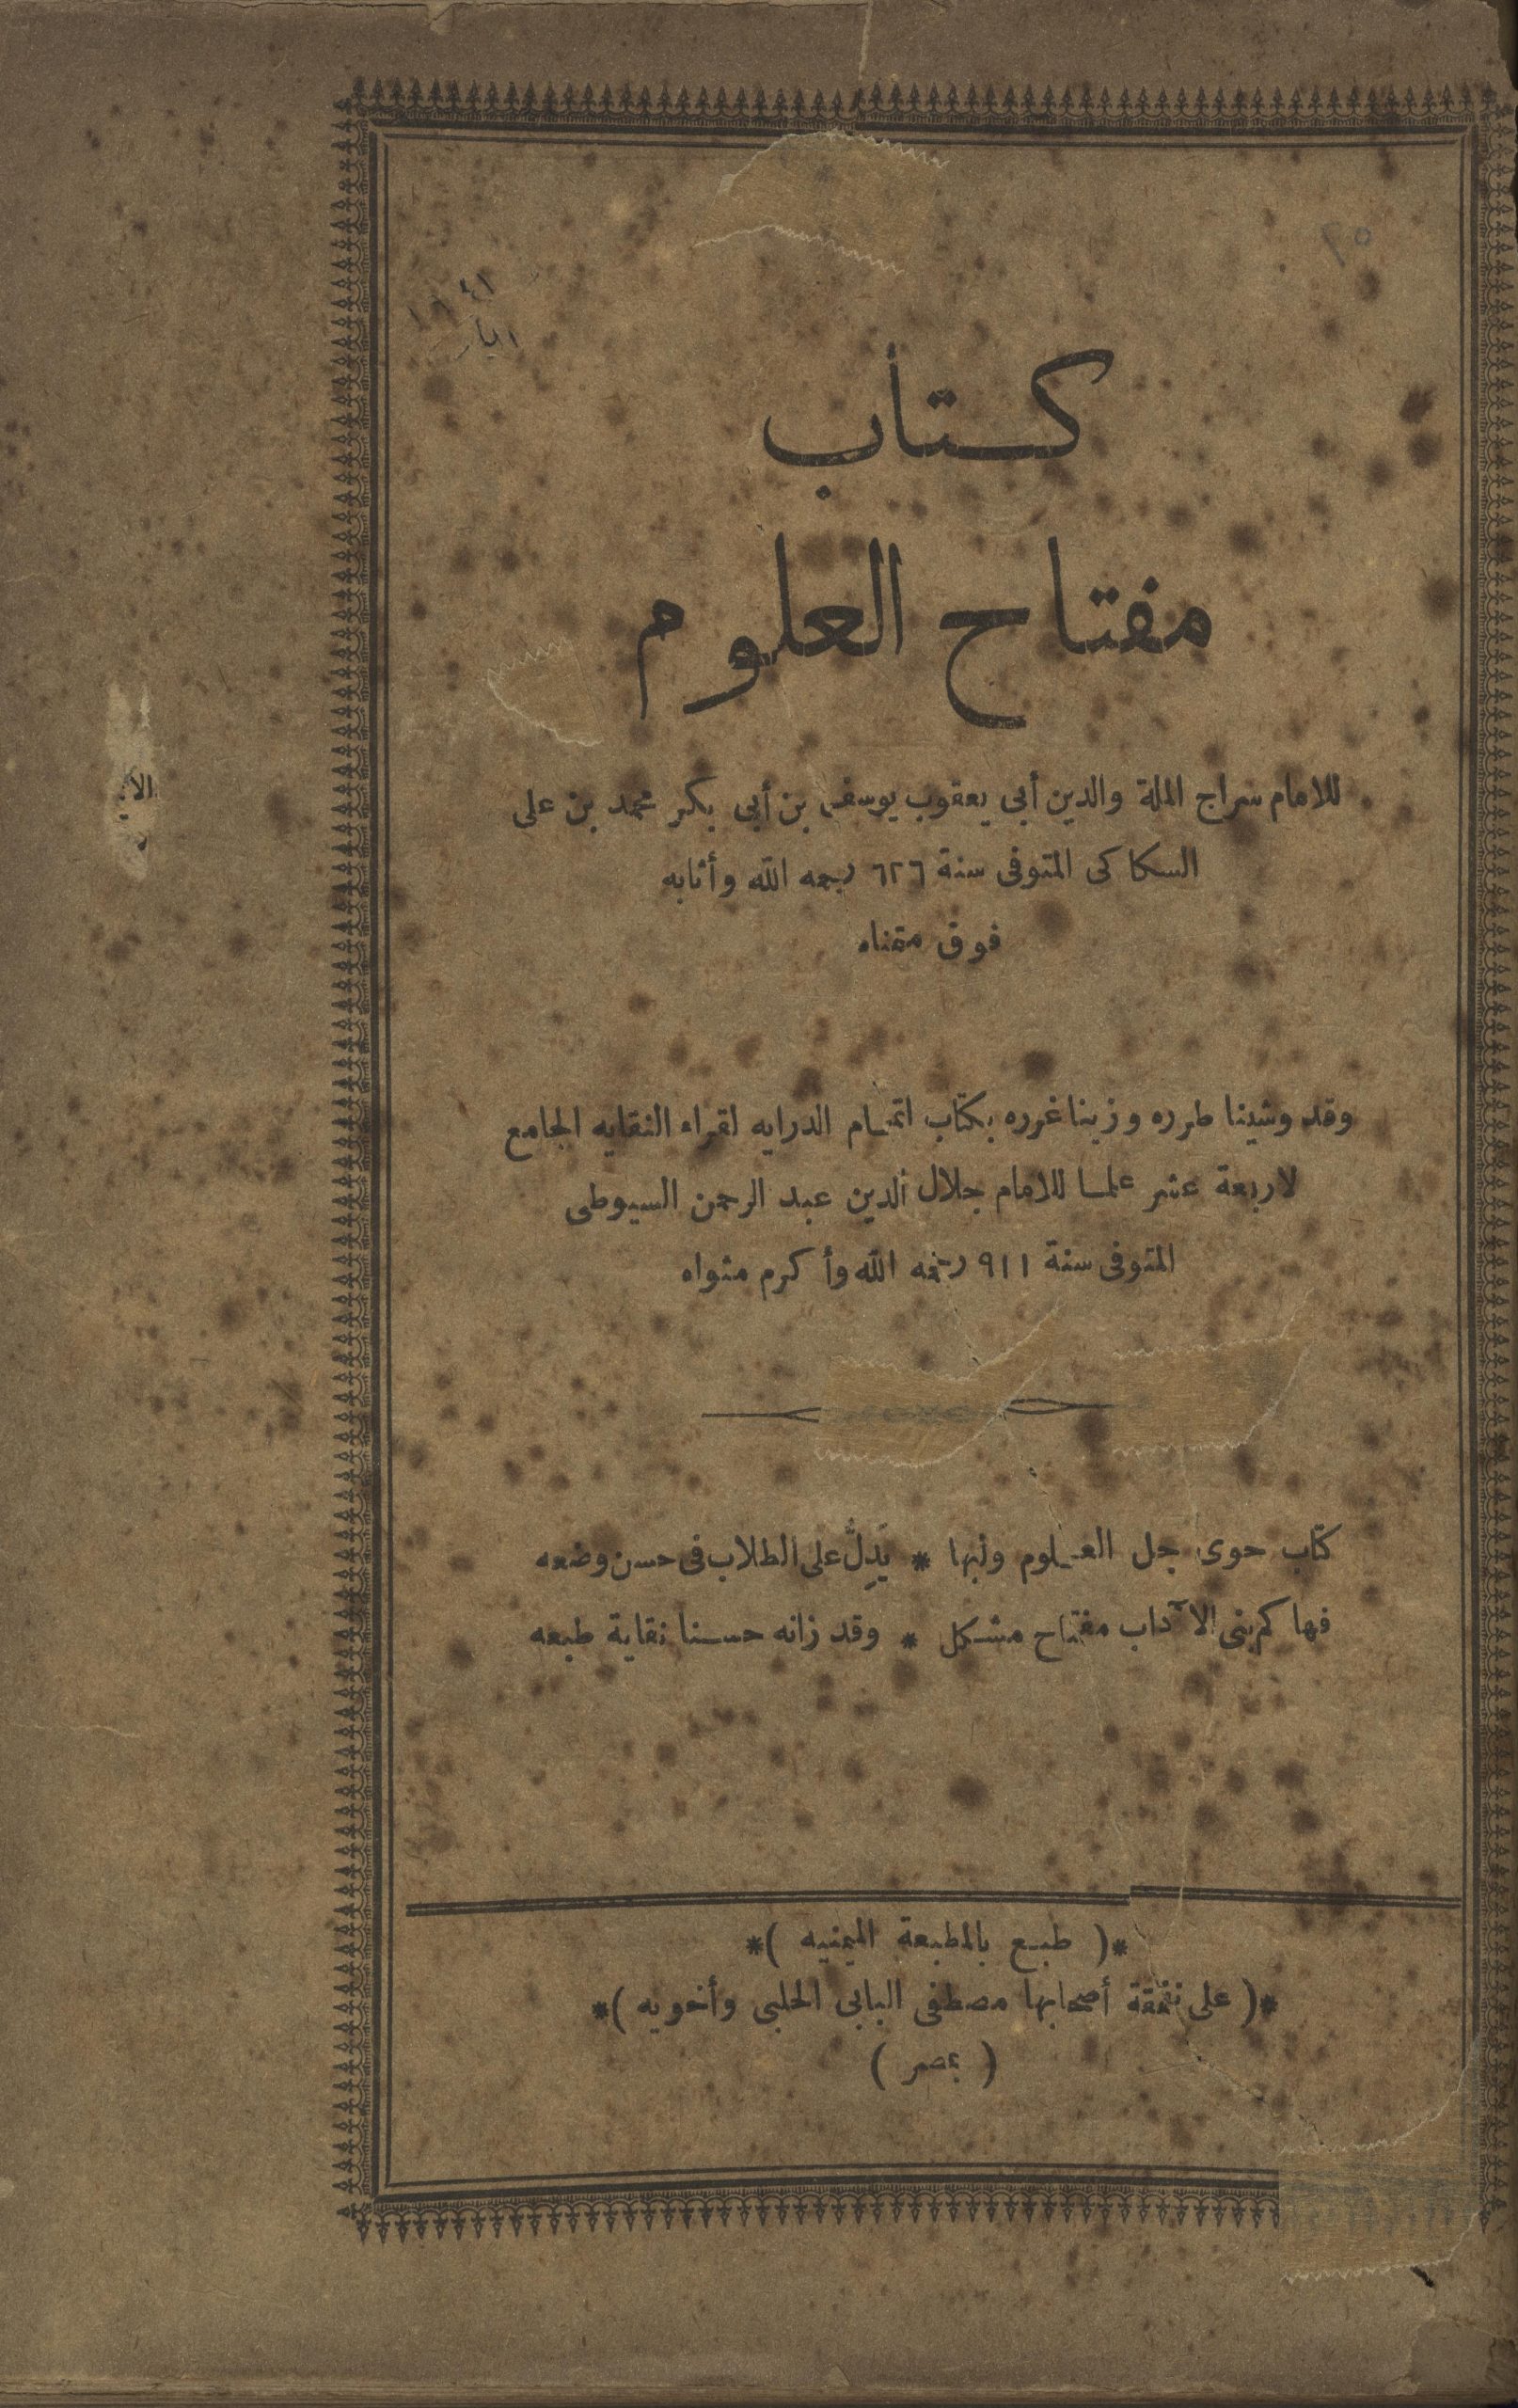 ٢٥
كتاب
مفتاح العلوم
للامام سراج الملة والدين أبى يعقوب يوسف بن أبى بكر محمد بن على
السكاكى المتوفى سنة ٦٢٦ رحمه الله وأثابه
فوق متمناه
وقد وشينا طرره وزينا غرره بكتاب اتمام الدرايه لقراء النقايه الجامع
لاربعة عشر علما للامام جلال الدين عبد الرحمن السيوطى
المتوفى سنة ٩١١ رحمه الله وأكرم مثواه
كتاب حوى جل العلوم ولبها * يَدِلُّ على الطلاب فى حسن وضعه
فها كم بنى الآداب مفتاح مشكل * وقد زانه حسنا نقاية طبعه
*( طبع بالمطبعة الميمنيه )*
*( على نفقة أصحابها مصطفى البابى الحلبى وأخويه )*
( بمصر )